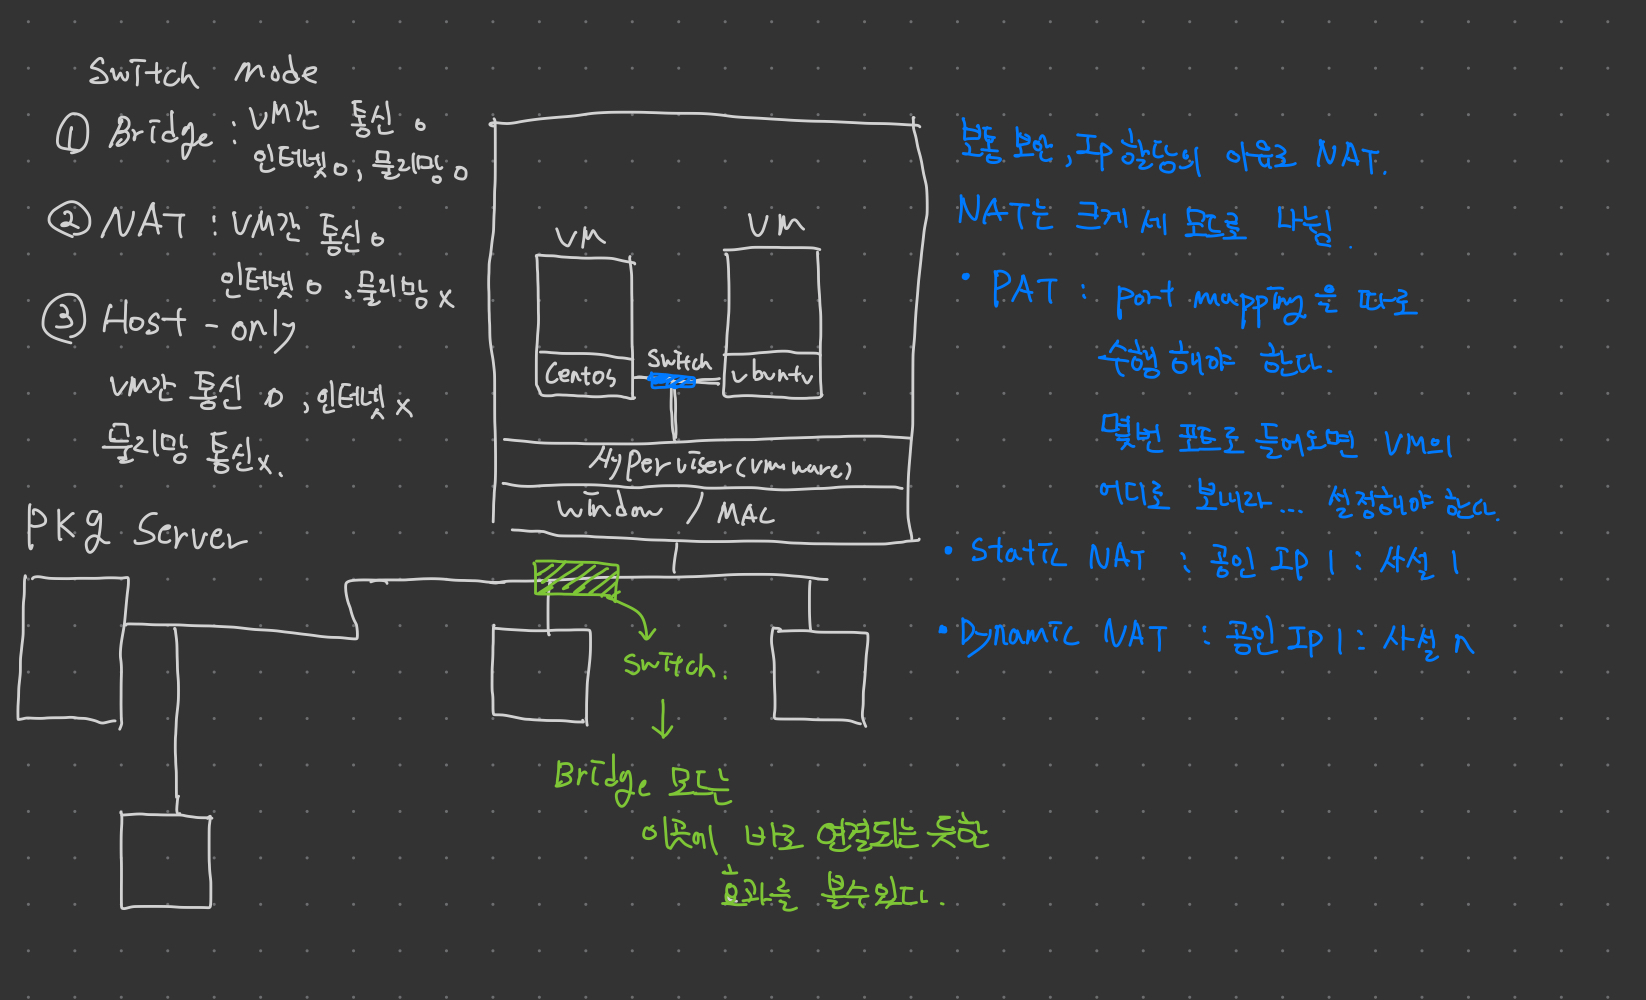 Switch mode
① Bridge : VM간 통신 o
인터넷 o, 물리망 o
② NAT : VM간 통신 o
인터넷 o, 물리망 x
③ Host - only
VM간 통신 o, 인터넷 x
물리망 통신 x.
PKg Server
VM
VM
Centos
Switch
ubuntu
Hyperviser(vmware)
window / MAC
Switch.
Bridge 모드는
이곳에 바로 연결되는 듯한
효과를 볼수있다.
보통 보안, Ip 할당의 이유로 NAT.
NAT는 크게 세 모드로 나뉨.
• PAT : port mapping을 따로
수행해야 한다.
몇번 포트로 들어오면 VM의
어디로 보내라... 설정해야 한다.
• Static NAT : 공인 Ip 1 : 사설 1
• Dynamic NAT : 공인 Ip 1 : 사설 n